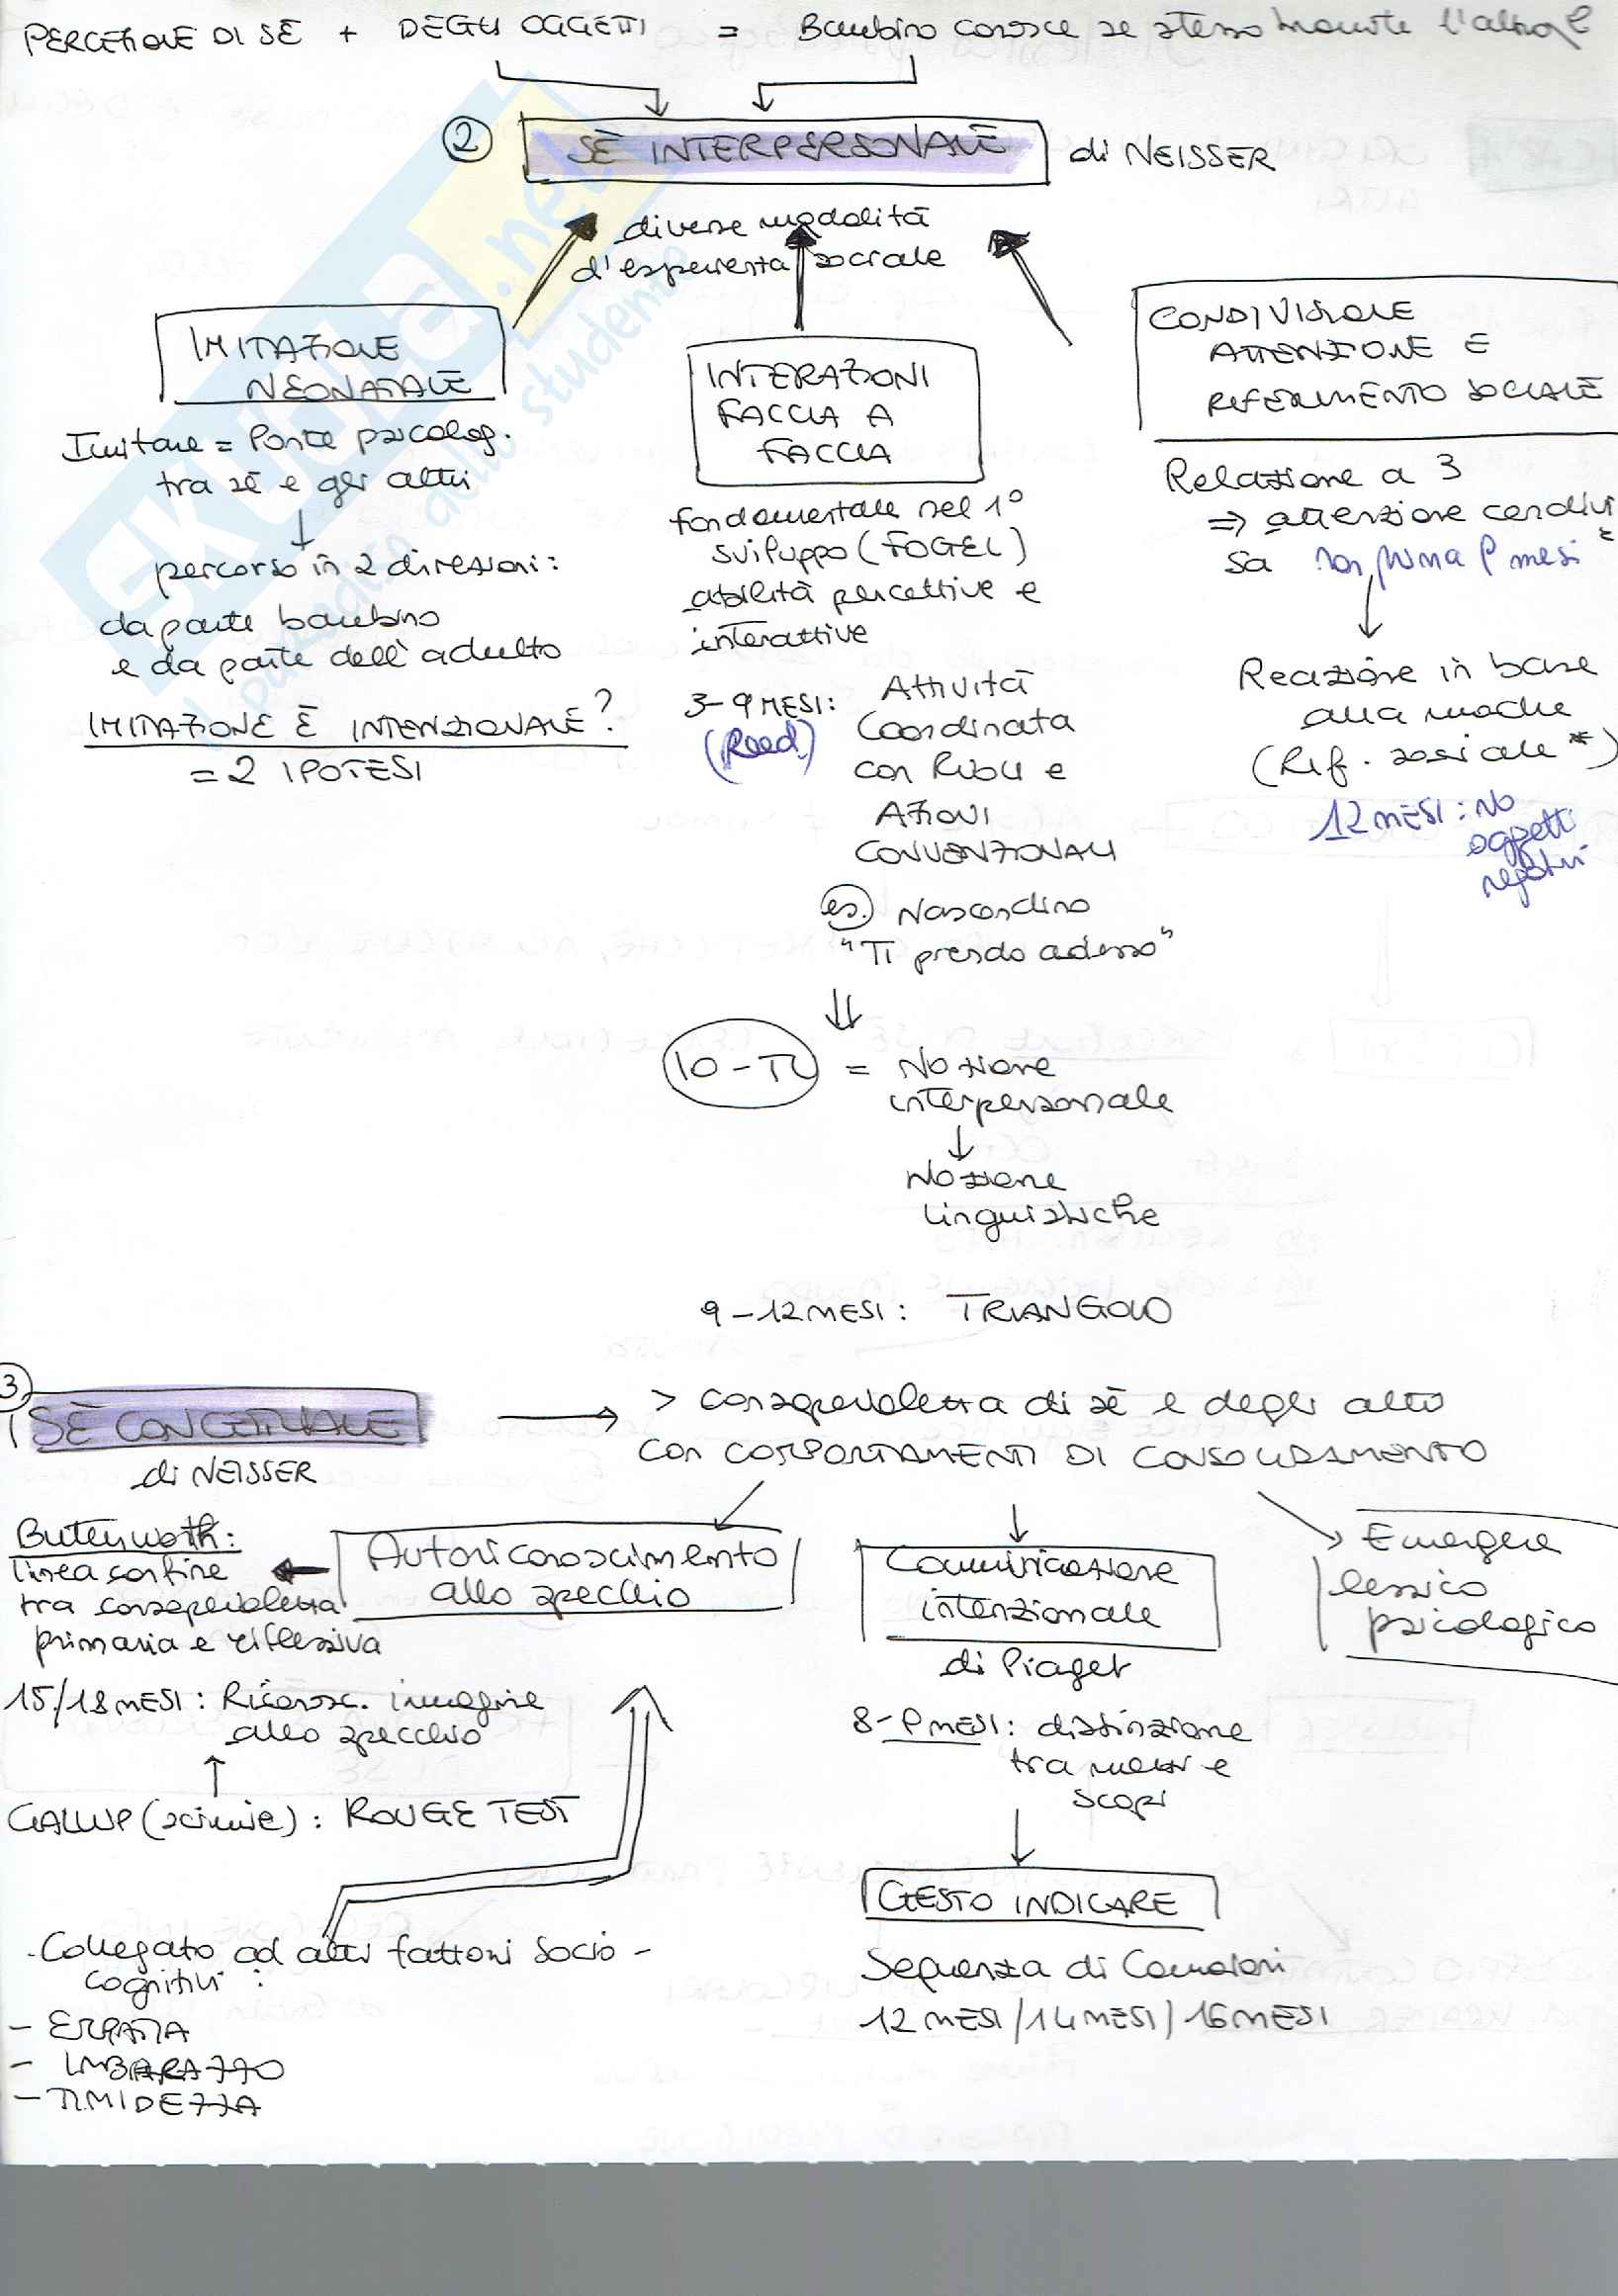 PERCEZIONE DI SÈ + DEGLI OGGETTI = Bambino conosce se stesso tramite l'altro
2 SÈ INTERPERSONALE di NEISSER
diverse modalità
d'esperienza sociale
IMITAZIONE
NEONATALE
Imitare = Ponte psicolog.
tra sé e gli altri
percorso in 2 direzioni:
da parte bambino
e da parte dell'adulto
IMITAZIONE È INTENZIONALE?
= 2 IPOTESI
INTERAZIONI
FACCIA A
FACCIA
fondamentale nel 1°
sviluppo (FOGEL)
abilità percettive e
interattive
3-9 MESI: Attività
(Reed) Coordinata
con Ruoli e
AZIONI
CONVENZIONALI
es. Nascondino
"Ti prendo adesso"
IO-TU = Nozione
interpersonale
Nozione
linguistiche
9-12 MESI: TRIANGOLO
CONDIVISIONE
ATTENZIONE E
RIFERIMENTO SOCIALE
Relazione a 3
⇒ attenzione condivi
sa non prima 9 mesi
Reazione in base
alla madre
(Rif. sociale *)
12 MESI: NO
oggetti
negativi
3 SÈ CONCETTUALE
di NEISSER
> consapevolezza di sé e degli altri
con COMPORTAMENTI DI CONSOLIDAMENTO
Autoriconoscimento
allo specchio
Butterworth:
linea confine
tra consapevolezza
primaria e riflessiva
15/18 MESI: Riconosc. immagine
allo specchio
GALLUP (scimmie): ROUGE TEST
- Collegato ad altri fattori socio-
cognitivi:
- EMPATIA
- IMBARAZZO
- TIMIDEZZA
Comunicazione
intenzionale
di Piaget
8-9 MESI: distinzione
tra mezzi e
scopi
GESTO INDICARE
Sequenza di Camaioni
12 MESI/14 MESI/16 MESI
Emergere
lessico
psicologico
SKUOLA.net
il paradiso dello studente